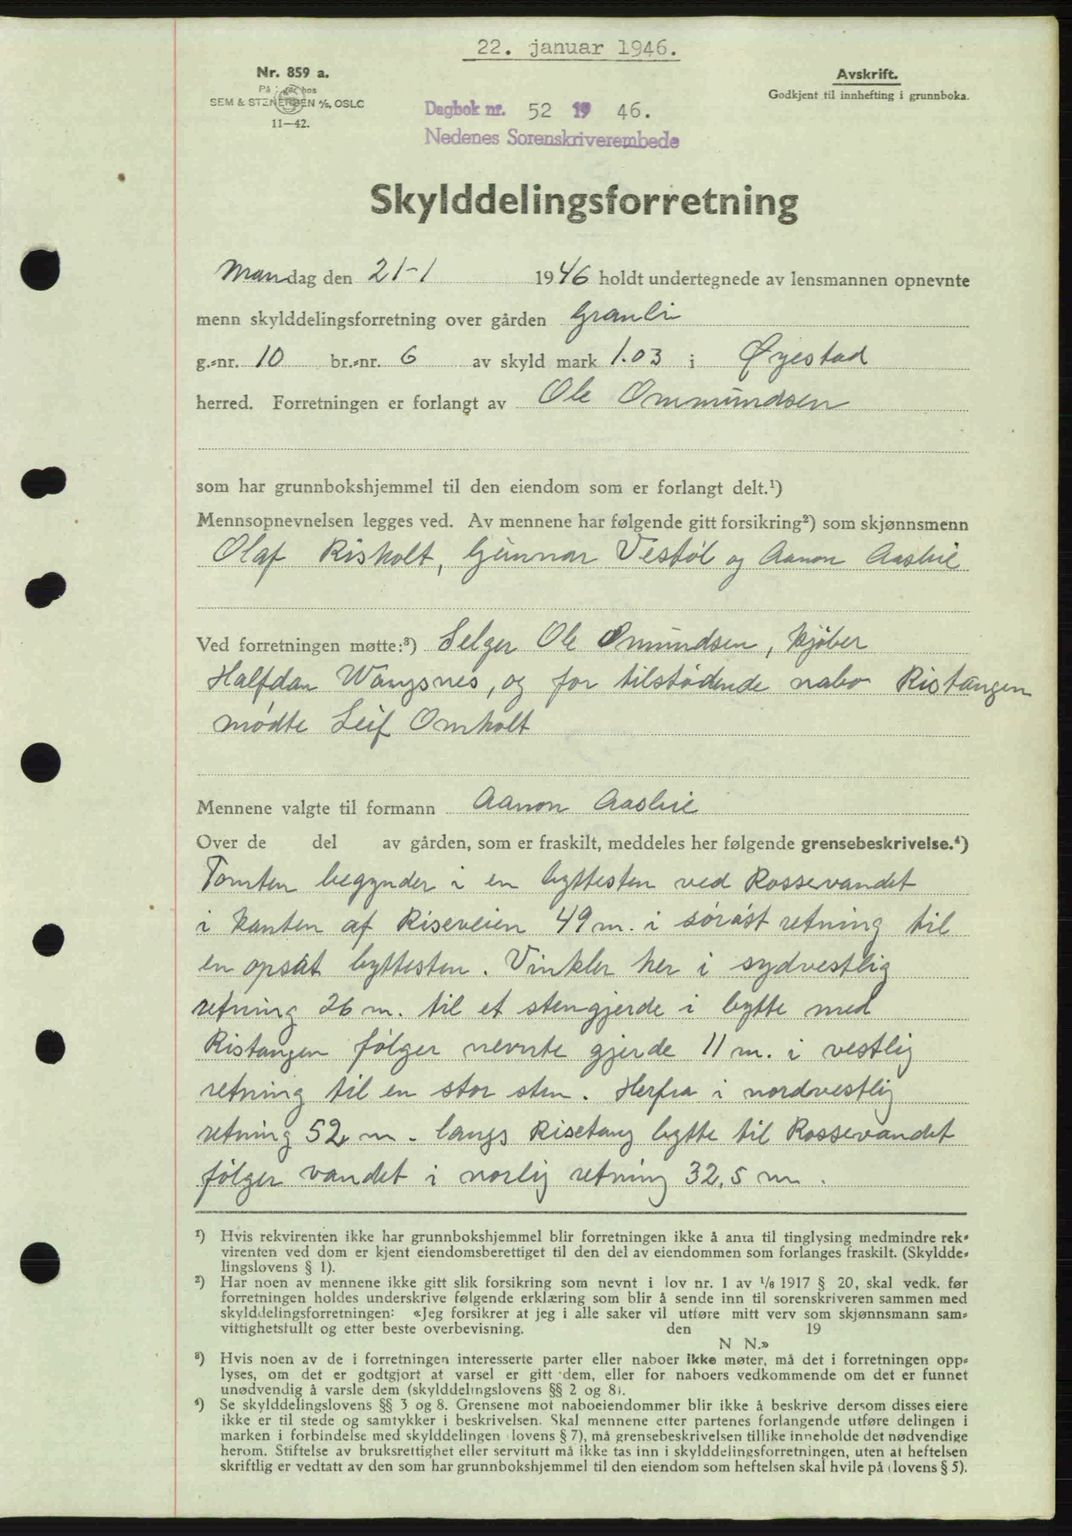 22. januar 1946.
Nr. 859 a.
På lager hos
SEM & STENERSEN A/S, OSLO
11—42.
Avskrift.
Godkjent til innhefting i grunnboka.
Dagbok nr. 52 19 46.
Nedenes Sorenskriverembede
Skylddelingsforretning
Mandag den 21-1 1946 holdt undertegnede av lensmannen opnevnte
menn skylddelingsforretning over gården Granli
g.-nr. 10 br.-nr. 6 av skyld mark 1.03 i Øyestad
herred. Forretningen er forlangt av Ole Ommundsen
som har grunnbokshjemmel til den eiendom som er forlangt delt.¹)
Mennsopnevnelsen legges ved. Av mennene har følgende gitt forsikring²) som skjønnsmenn
Olaf Risholt, Gunnar Vestøl og Aanon Aaslie
Ved forretningen møtte:³) Selger Ole Omundsen, kjøber
Halfdan Wangsnes, og for tilstødende nabo Ristangen
mødte Leif Omholt
Mennene valgte til formann Aanon Aaslie
Over de del av gården, som er fraskilt, meddeles her følgende grensebeskrivelse.⁴)
Tomten begynder i en byttesten ved Rossevandet
i kanten af Riseveien 49 m. i sørøst retning til
en opsat byttesten. Vinkler her i sydvestlig
retning 26 m. til et stengjerde i bytte med
Ristangen følger nevnte gjerde 11 m. i vestlig
retning til en stor sten. Herfra i nordvestlig
retning 52 m. langs Risetang bytte til Rossevandet
følger vandet i norlig retning 32,5 m.
¹) Hvis rekvirenten ikke har grunnbokshjemmel blir forretningen ikke å anta til tinglysing medmindre rek-
virenten ved dom er kjent eiendomsberettiget til den del av eiendommen som forlanges fraskilt. (Skyldde-
lingslovens § 1).
²) Har noen av mennene ikke gitt slik forsikring som nevnt i lov nr. 1 av 1/6 1917 § 20, skal vedk. før
forretningen holdes underskrive følgende erklæring som blir å sende inn til sorenskriveren sammen med
skylddelingsforretningen: «Jeg forsikrer at jeg i alle saker vil utføre mitt verv som skjønnsmann sam-
vittighetsfullt og etter beste overbevisning. den 19
N N.»
³) Hvis noen av de i forretningen interesserte parter eller naboer ikke møter, må det i forretningen opp-
lyses, om det er godtgjort at varsel er gitt dem, eller for naboers vedkommende om det er funnet
unødvendig å varsle dem (skylddelingslovens §§ 2 og 8).
⁴) Se skylddelingslovens §§ 3 og 8. Grensene mot naboeiendommer blir ikke å beskrive dersom disses eiere
ikke er til stede og samtykker i beskrivelsen. Skal mennene etter partenes forlangende utføre delingen i
marken i forbindelse med skylddelingen (lovens § 7), må grensebeskrivelsen tillike inneholde det nødvendige
herom. Stiftelse av bruksrettighet eller servitutt må ikke tas inn i skylddelingsforretningen, uten at heftelsen
skriftlig er vedtatt av den som har grunnbokshjemmel til den eiendom som heftelsen skal hvile på (lovens § 5).